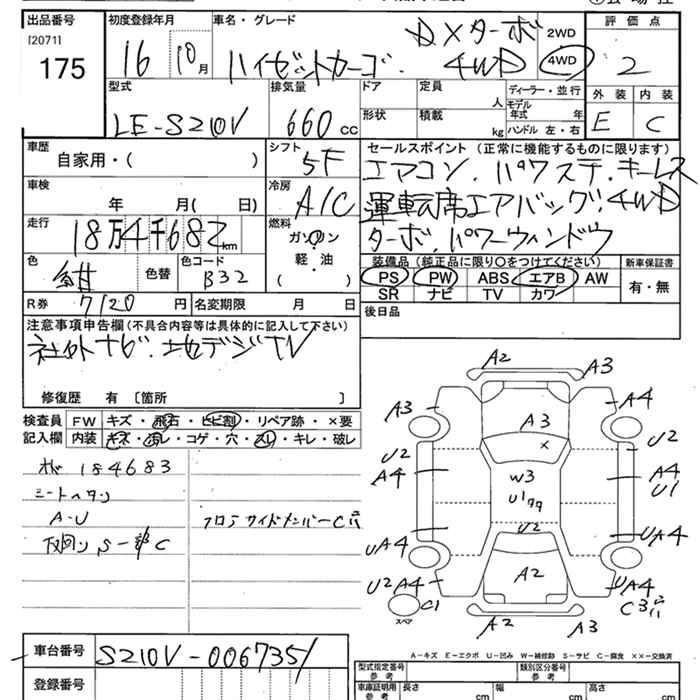 出品番号 初度登録年月 車名・グレード 評価点
[2071] 175
16 10月 ハイゼットカーゴ. DXターボ 4WD 2WD 4WD 2
型式 排気量 ドア 定員 人 ディーラー・並行 外装 内装
形状 積載 kg モデル年式 年 ハンドル 左・右
LE-S210V 660cc E C
車歴 シフト セールスポイント(正常に機能するものに限ります)
自家用・( ) 5F エアコン.パワステ.キーレス
車検 冷房 運転席エアバッグ.4WD
年 月(日) A/C ターボ.パワーウィンドウ
走行 燃料
18万4千682km ガソリン 軽・油 ( )
色 色替 色コード 装備品(純正品に限り○をつけてください) 新車保証書
紺 B32 PS PW ABS エアB AW 有・無
SR ナビ TV カワ
R券 7120円 名変期限 月 日 後日品
注意事項申告欄(不具合内容等は具体的に記入して下さい)
社外ナビ.地デジTV
修復歴 有 〔箇所 〕
検査員 FW キズ・飛石・ヒビ割・リペア跡・×要
記入欄 内装 キズ・汚れ・コゲ・穴・スレ・キレ・破レ
184683
シートヘタリ
A-U フロアサイドメンバーC穴
下回りS一部C
A2 A3
A3 A3 A4
U2 A4 W3 U2
U1 99 A4 U1
U2
UA4 UA4
U2 A4 A2 UA4
C1 C3穴
スペア A2 A3
A-キズ E-エクボ U-凹み W-補修跡 S-サビ C-腐食 ××-交換済
車台番号 S210V-0067351
登録番号
型式指定番号 参考 類別区分番号 参考
車庫証明用 参考 長さ cm 幅 cm 高さ cm